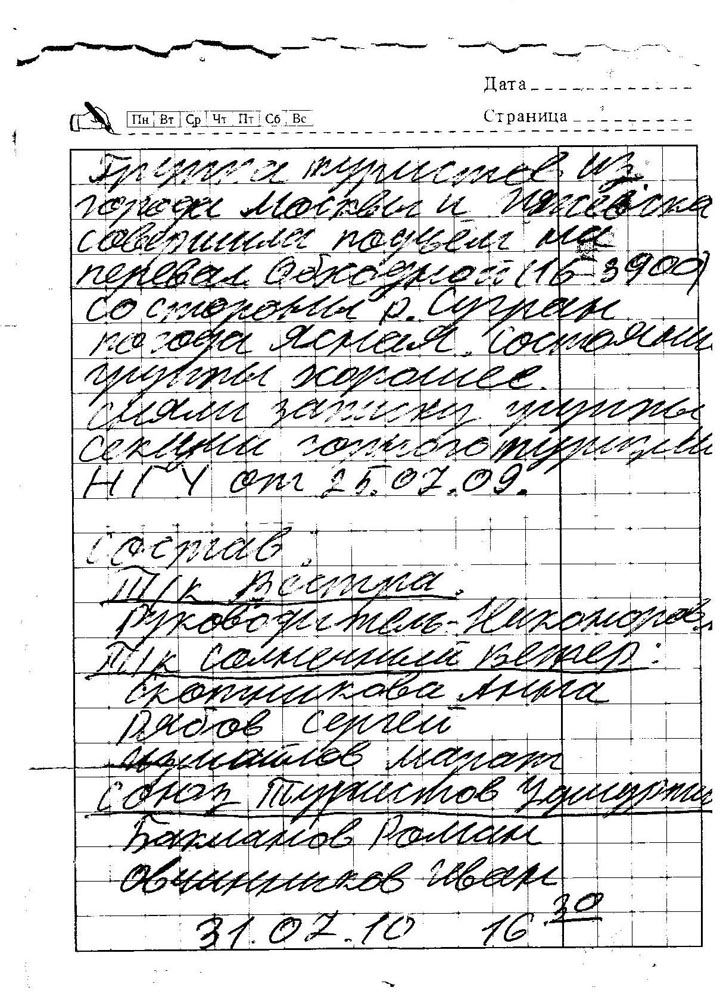 Дата
Пн Вт Ср Чт Пт Сб Вс
Страница
Группа туристов из
города Москвы и Ижевска
совершила подъём на
перевал Обходной (1Б 3900)
со стороны р. Сугран
погода ясная. Состояни
группы хорошее.
сняли записку группы
секции горного туризм
НГУ от 25.07.09.
Состав:
Т/к Вестра.
Руководитель-Никоноров
Т/к солнечный ветер:
Скопникова Анна
Рябов Сергей
Измайлов Марат
Союз Туристов Удмурти
Бахманов Роман
Овчинников Иван
31.07.10 16 30